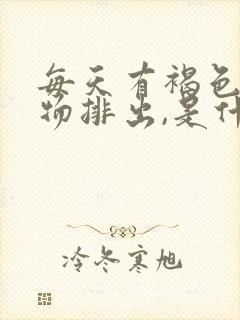 每天有褐色
物排出,是什
冷冬寒旭